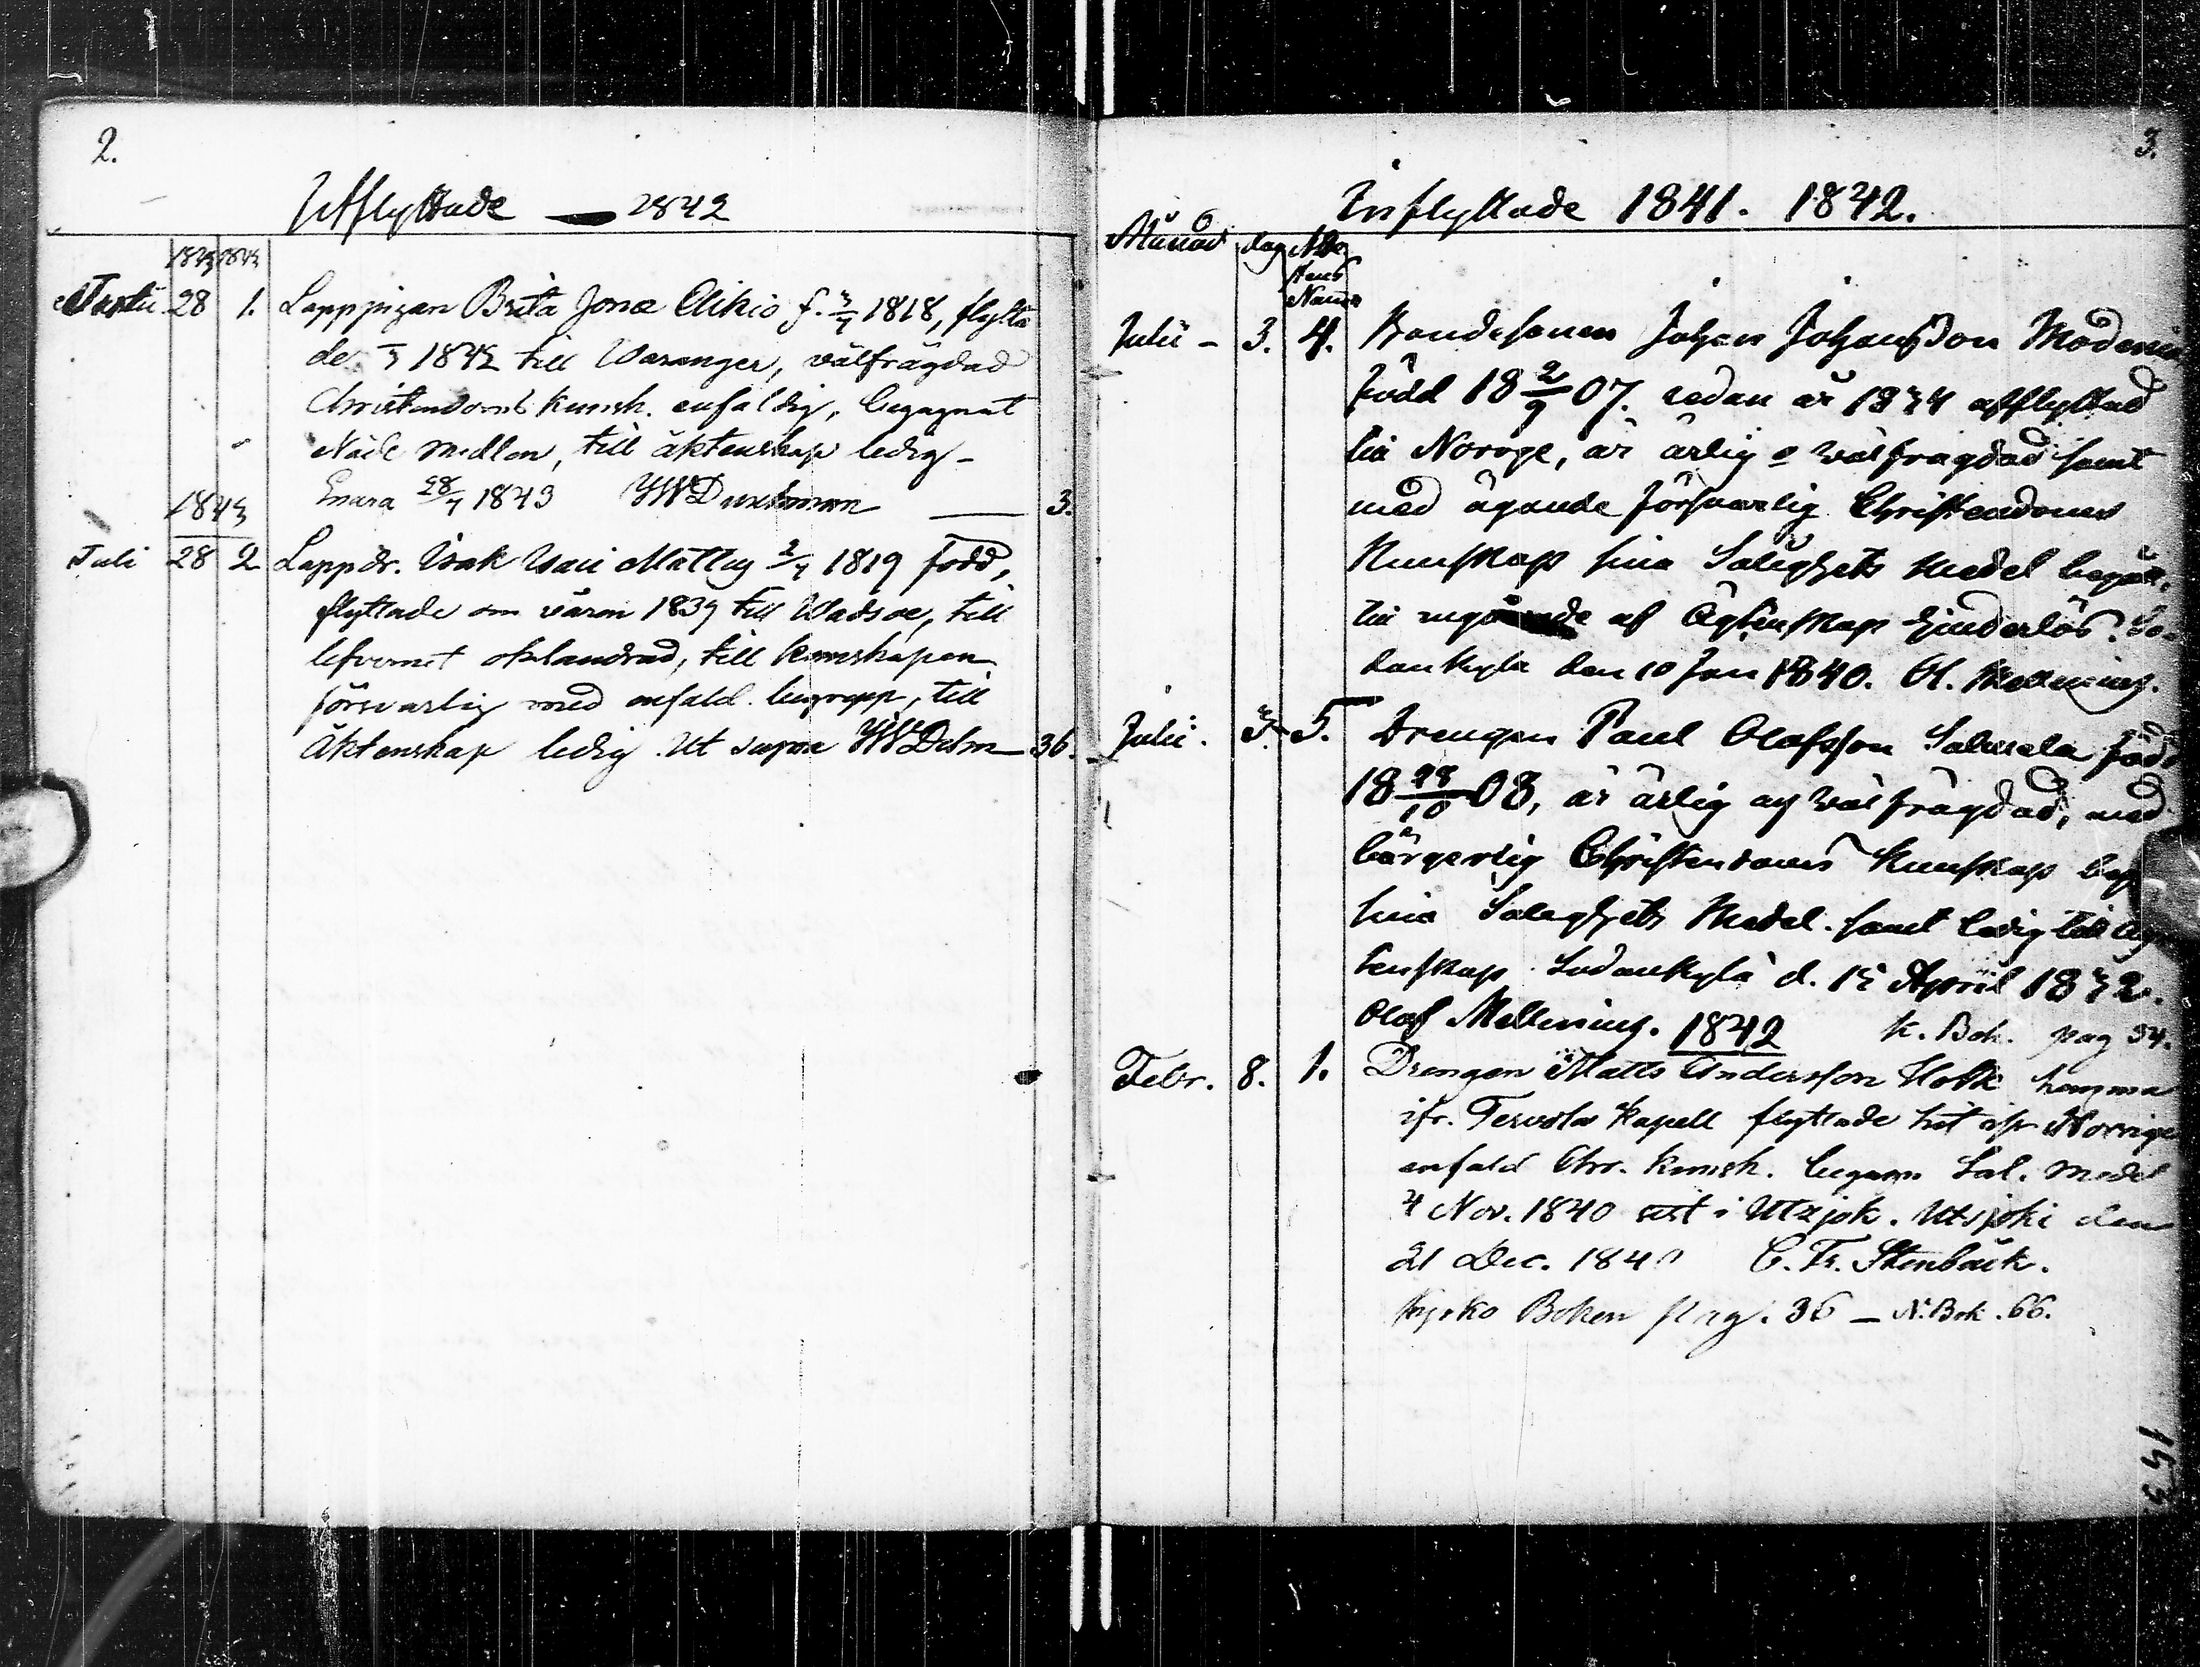 2.
Utflyttade — 1842
1843 1843
Julii 28 1. Lapppigan Brita Jonæ Aikio f. 3/4 1818, flytta
de 1842 till Waranger, välfrägdad
Christendoms kunsk. enfaldig, begagnat
Nåde medlen, till äktenskap ledig –
Enara 28/7 1843 — 3.
1843
Juli 28 2 Lappdr. Isak Isaci Mattus 2/4 1819 född,
flyttade om våren 1839 till Wadsoe, till
lefvernet oklandrad, till kunskapen
försvarlig med enfald. begrepp, till
Äktenskap ledig. Ut supra 36.
3.
Inflyttade 1841. 1842.
Månad dag
Julii – 3. 4. Bondesonen Johan Johansson
född 18 2/9 07. sedan år afflyttad
till Norrge, är ärlig o välfragdad samt
med ägande försvarlig Christendoms
Kunskap sina Salighets Medel
till af Ägtenskap hinderlös. So-
dankyla den 10 Jan 1840. Ol. Mellenius.
Julii. 3. 5. Drengen Paul Olafsson född
18 28/10 08, är ärlig og välfrägdad, med
börgerlig Christendoms Kunskap
sina Salighets Medel. samt ledig till Äg
tenskap Sodankylä d. 15 April 1842.
Olof Mellenius. 1842 k. Bok. pag 34.
Febr. 8. 1. Drengen Matts Andersson hemma
ifr. Tervola Kapell flyttade hit ifr Norrige
enfald Chr. kunsk. begagn Sal. medel
4 Nov. 1840 sist i Utsjok. Utsjoki den
21 Dec. 184 C. Fr. Stenbäck.
Kyrko Boken pag. 36 – N. Bok. 66.